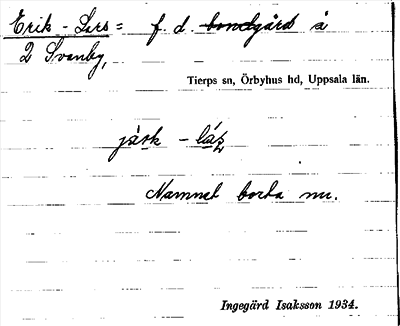 Erik-Lars = f. d. bondgård å
2 Svanby,
Tierps sn, Örbyhus hd, Uppsala län.
Namnet borta nu.
Ingegärd Isaksson 1934.